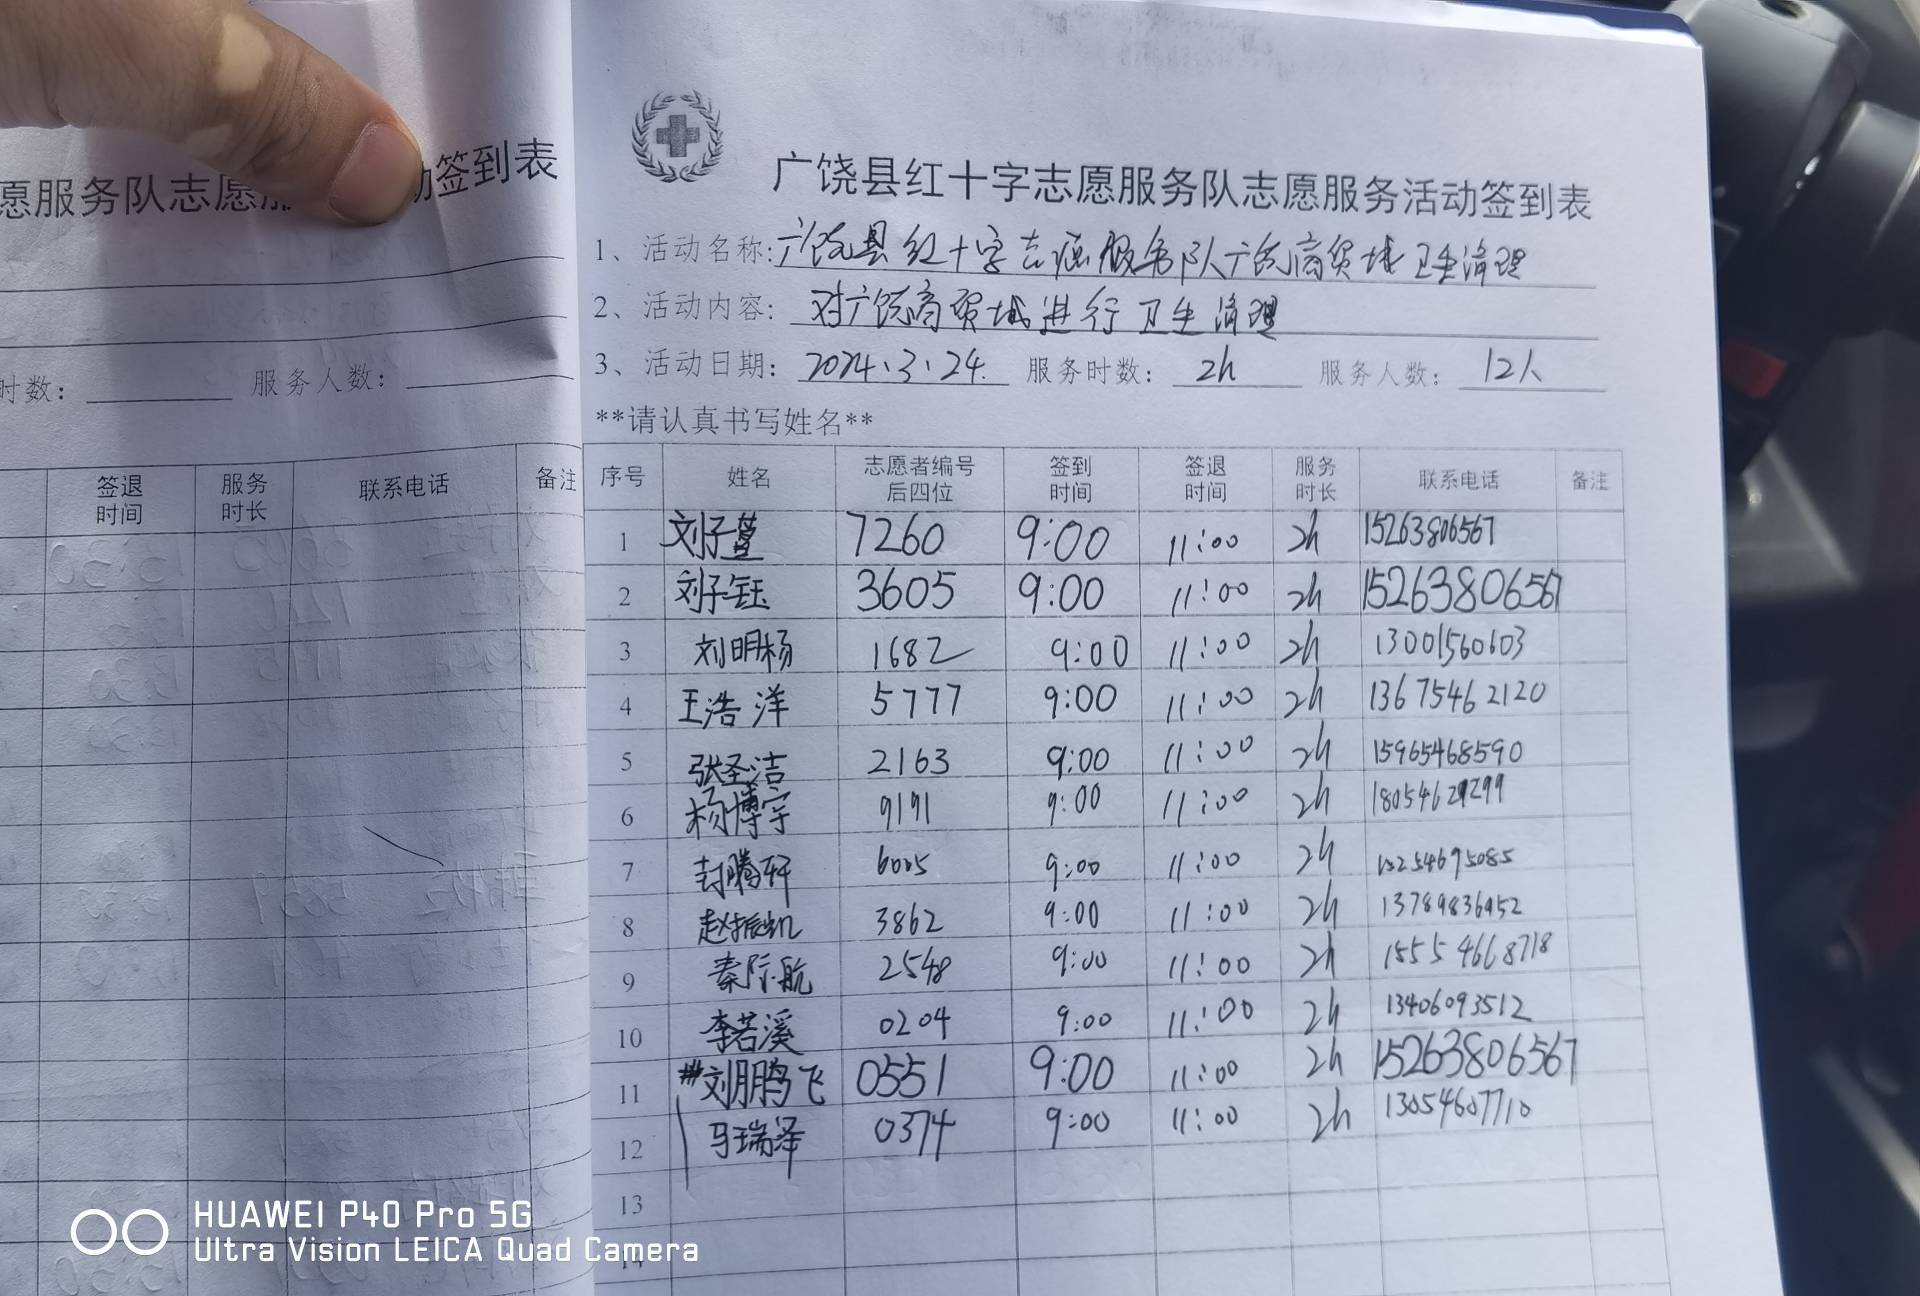 愿服务队志愿
动签到表
时数：
服务人数：
签退时间
服务时长
联系电话
备注
广饶县红十字志愿服务队志愿服务活动签到表
1、活动名称：广饶县红十字志愿服务队广饶商贸城卫生清理
2、活动内容：对广饶商贸城进行卫生清理
3、活动日期：2024.3.24. 服务时数：2h 服务人数：12人
**请认真书写姓名**
序号 姓名 志愿者编号后四位 签到时间 签退时间 服务时长 联系电话 备注
1 刘子萱 7260 9:00 11:00 2h 15263806567
2 刘子钰 3605 9:00 11:00 2h 15263806567
3 刘明杨 1682 9:00 11:00 2h 13001560603
4 王浩洋 5777 9:00 11:00 2h 13675462120
5 张圣洁 2163 9:00 11:00 2h 15965468590
6 杨博宇 9191 9:00 11:00 2h
7 封腾轩 6005 9:00 11:00 2h 13254695085
8 赵振凯 3862 9:00 11:00 2h
9 秦际航 2548 9:00 11:00 2h 15554668718
10 李若溪 0204 9:00 11:00 2h 13406093512
11 刘鹏飞 0551 9:00 11:00 2h 15263806567
12 马瑞泽 0374 9:00 11:00 2h 13054607710
13
14
HUAWEI P40 Pro 5G
Ultra Vision LEICA Quad Camera